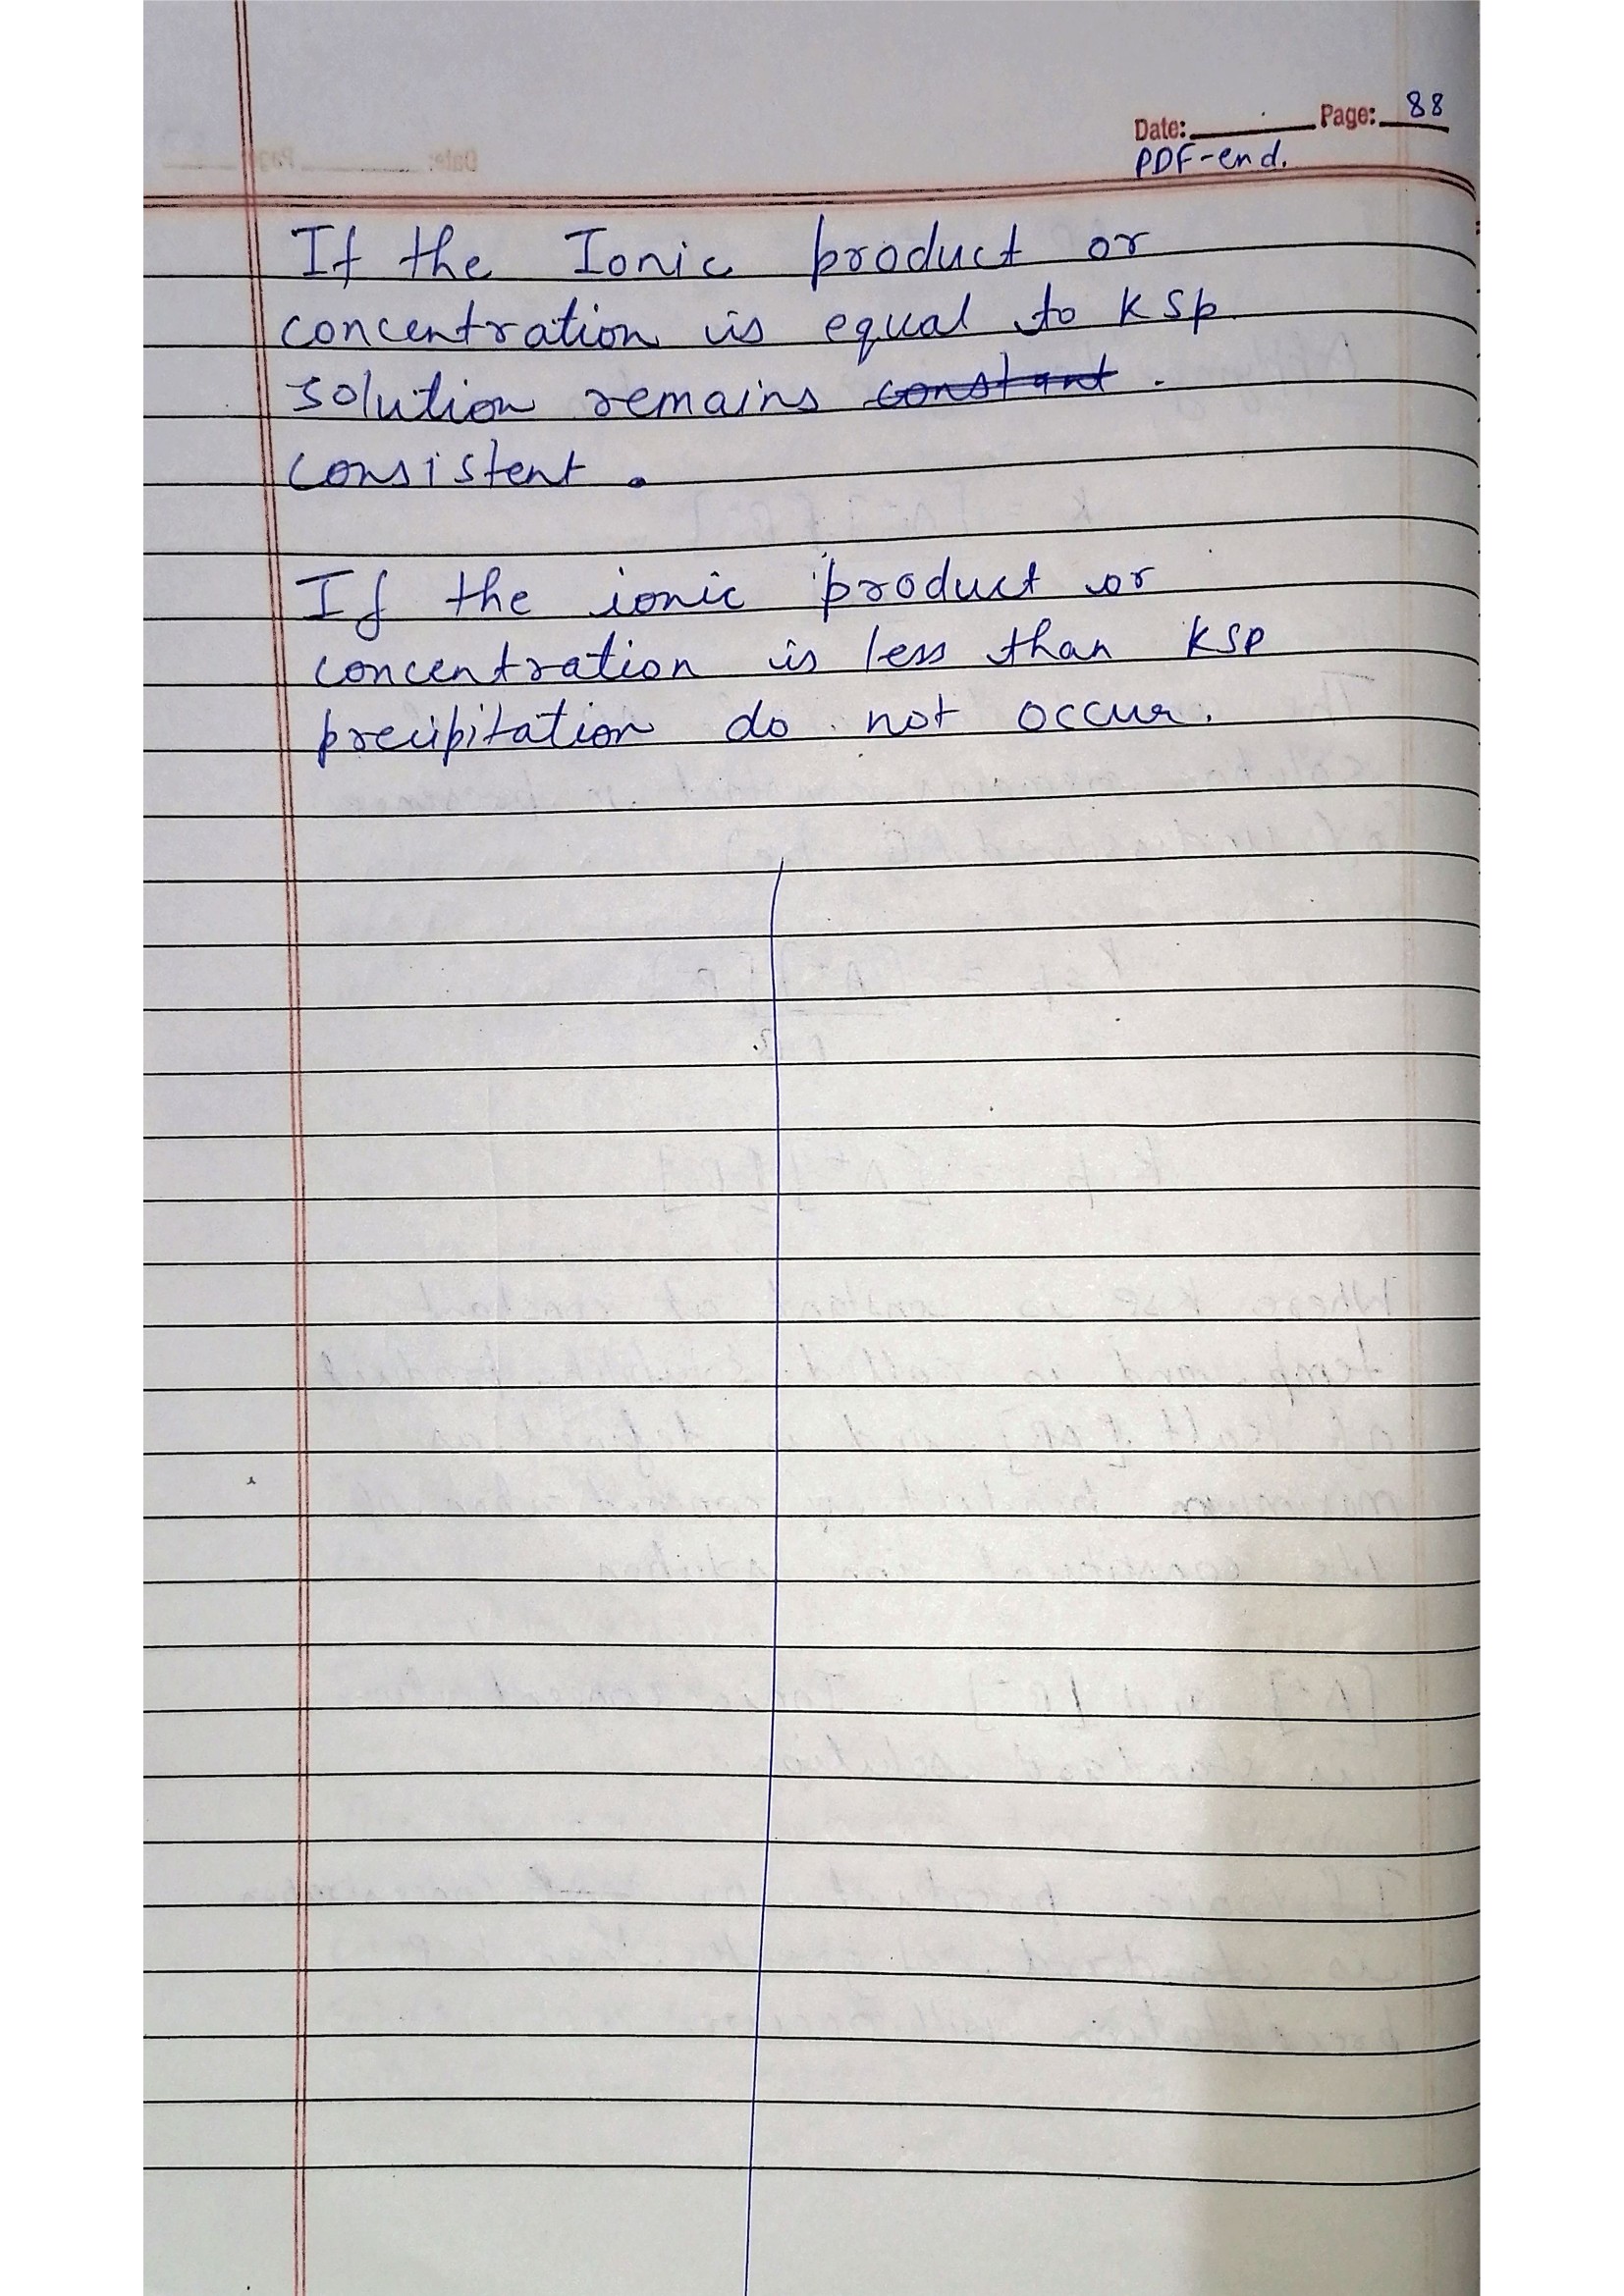 Date: Page: 88
PDF-end.
If the Ionic product or
concentration is equal to KSp
solution remains constant.
consistent.
If the ionic product or
concentration is less than KSP
precipitation do not occur.